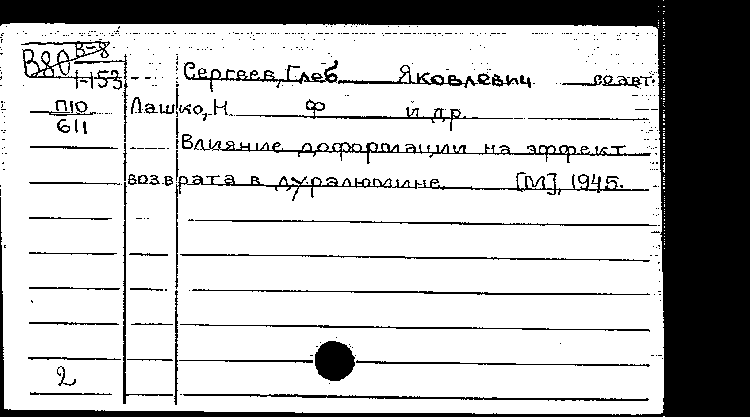 В80 В-8
1-153 -- Сергеев, Глеб Яковлевич соавт.
П10 Лашко, Н Ф и др.
611
Влияние доформации на эффект
возврата в дуралюмине [М], 1945.
2